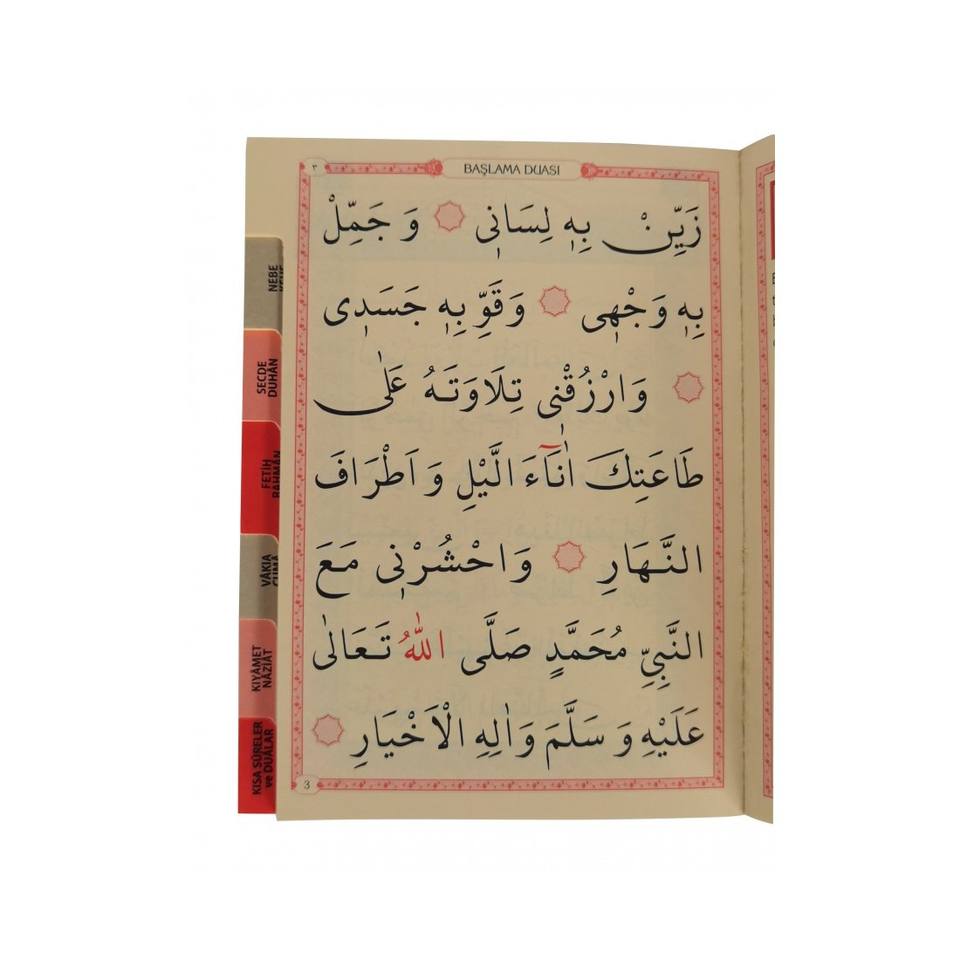 ٣
BAŞLAMA DUASI
زَيِّنْ بِهٖ لِسَانٖى وَ جَمِّلْ
بِهٖ وَجْهٖى وَقَوِّ بِهٖ جَسَدٖى
وَارْزُقْنٖى تِلَاوَتَهُ عَلٰى
طَاعَتِكَ اٰنَٓاءَ الَّيْلِ وَ اَطْرَافَ
النَّهَارِ وَاحْشُرْنٖى مَعَ
النَّبِيِّ مُحَمَّدٍ صَلَّى اللّٰهُ تَعَالٰى
عَلَيْهِ وَ سَلَّمَ وَاٰلِهِ الْاَخْيَارِ
3
NEBE
SECDE
DUHÂN
FETİH
RAHMÂN
VÂKIA
CUMA
KIYÂMET
NÂZİÂT
KISA SÛRELER
ve DUÂLAR